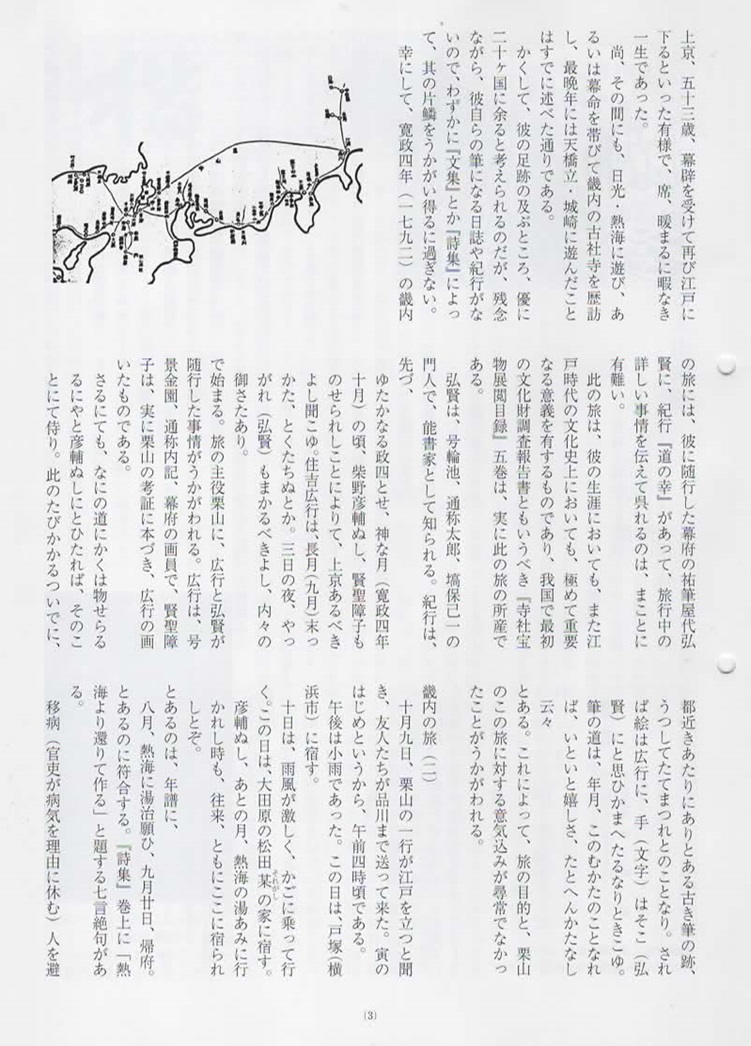 上京、五十三歳、幕辟を受けて再び江戸に
下るといった有様で、席、暖まるに暇なき
一生であった。
尚、その間にも、日光・熱海に遊び、あ
るいは幕命を帯びて畿内の古社寺を歴訪
し、最晩年には天橋立・城崎に遊んだこと
はすでに述べた通りである。
かくして、彼の足跡の及ぶところ、優に
二十ヶ国に余ると考えられるのだが、残念
ながら、彼自らの筆になる日誌や紀行がな
いので、わずかに『文集』とか『詩集』によっ
て、其の片鱗をうかがい得るに過ぎない。
幸にして、寛政四年(一七九二)の畿内
の旅には、彼に随行した幕府の祐筆屋代弘
賢に、紀行『道の幸』があって、旅行中の
詳しい事情を伝えて呉れるのは、まことに
有難い。
此の旅は、彼の生涯においても、また江
戸時代の文化史上においても、極めて重要
なる意義を有するものであり、我国で最初
の文化財調査報告書ともいうべき『寺社宝
物展閲目録』五巻は、実に此の旅の所産で
ある。
弘賢は、号輪池、通称太郎、塙保己一の
門人で、能書家として知られる。紀行は、
先づ、
ゆたかなる政四とせ、神な月(寛政四年
十月)の頃、柴野彦輔ぬし、賢聖障子も
のせられしことによりて、上京あるべき
よし聞こゆ。住吉広行は、長月(九月)末っ
かた、とくたちぬとか。三日の夜、やつ
がれ(弘賢)もまかるべきよし、内々の
御さたあり。
で始まる。旅の主役栗山に、広行と弘賢が
随行した事情がうかがわれる。広行は、号
景金園、通称内記、幕府の画員で、賢聖障
子は、実に栗山の考証に本づき、広行の画
いたものである。
さるにても、なにの道にかくは物せらる
るにやと彦輔ぬしにとひたれば、そのこ
とにて侍り。此のたびかかるついでに、
都近きあたりにありとある古き筆の跡、
うつしてたてまつれとのことなり。され
ば絵は広行に、手(文字)はそこ(弘
賢)にと思ひかまへたるなりときこゆ。
筆の道は、年月、このむかたのことなれ
ば、いといと嬉しさ、たとへんかたなし
云々
とある。これによって、旅の目的と、栗山
のこの旅に対する意気込みが尋常でなかっ
たことがうかがわれる。
畿内の旅(二)
十月九日、栗山の一行が江戸を立つと聞
き、友人たちが品川まで送って来た。寅の
はじめというから、午前四時頃である。
午後は小雨であった。この日は、戸塚(横
浜市)に宿す。
十日は、雨風が激しく、かごに乗って行
く。この日は、大田原の松田某の家に宿す。
それがし
彦輔ぬし、あとの月、熱海の湯あみに行
かれし時も、往来、ともにここに宿られ
しとぞ。
とあるのは、年譜に、
八月、熱海に湯治願ひ、九月廿日、帰府。
とあるのに符合する。『詩集』巻上に「熱
海より還りて作る」と題する七言絶句があ
る。
移病(官吏が病気を理由に休む)人を避
(3)